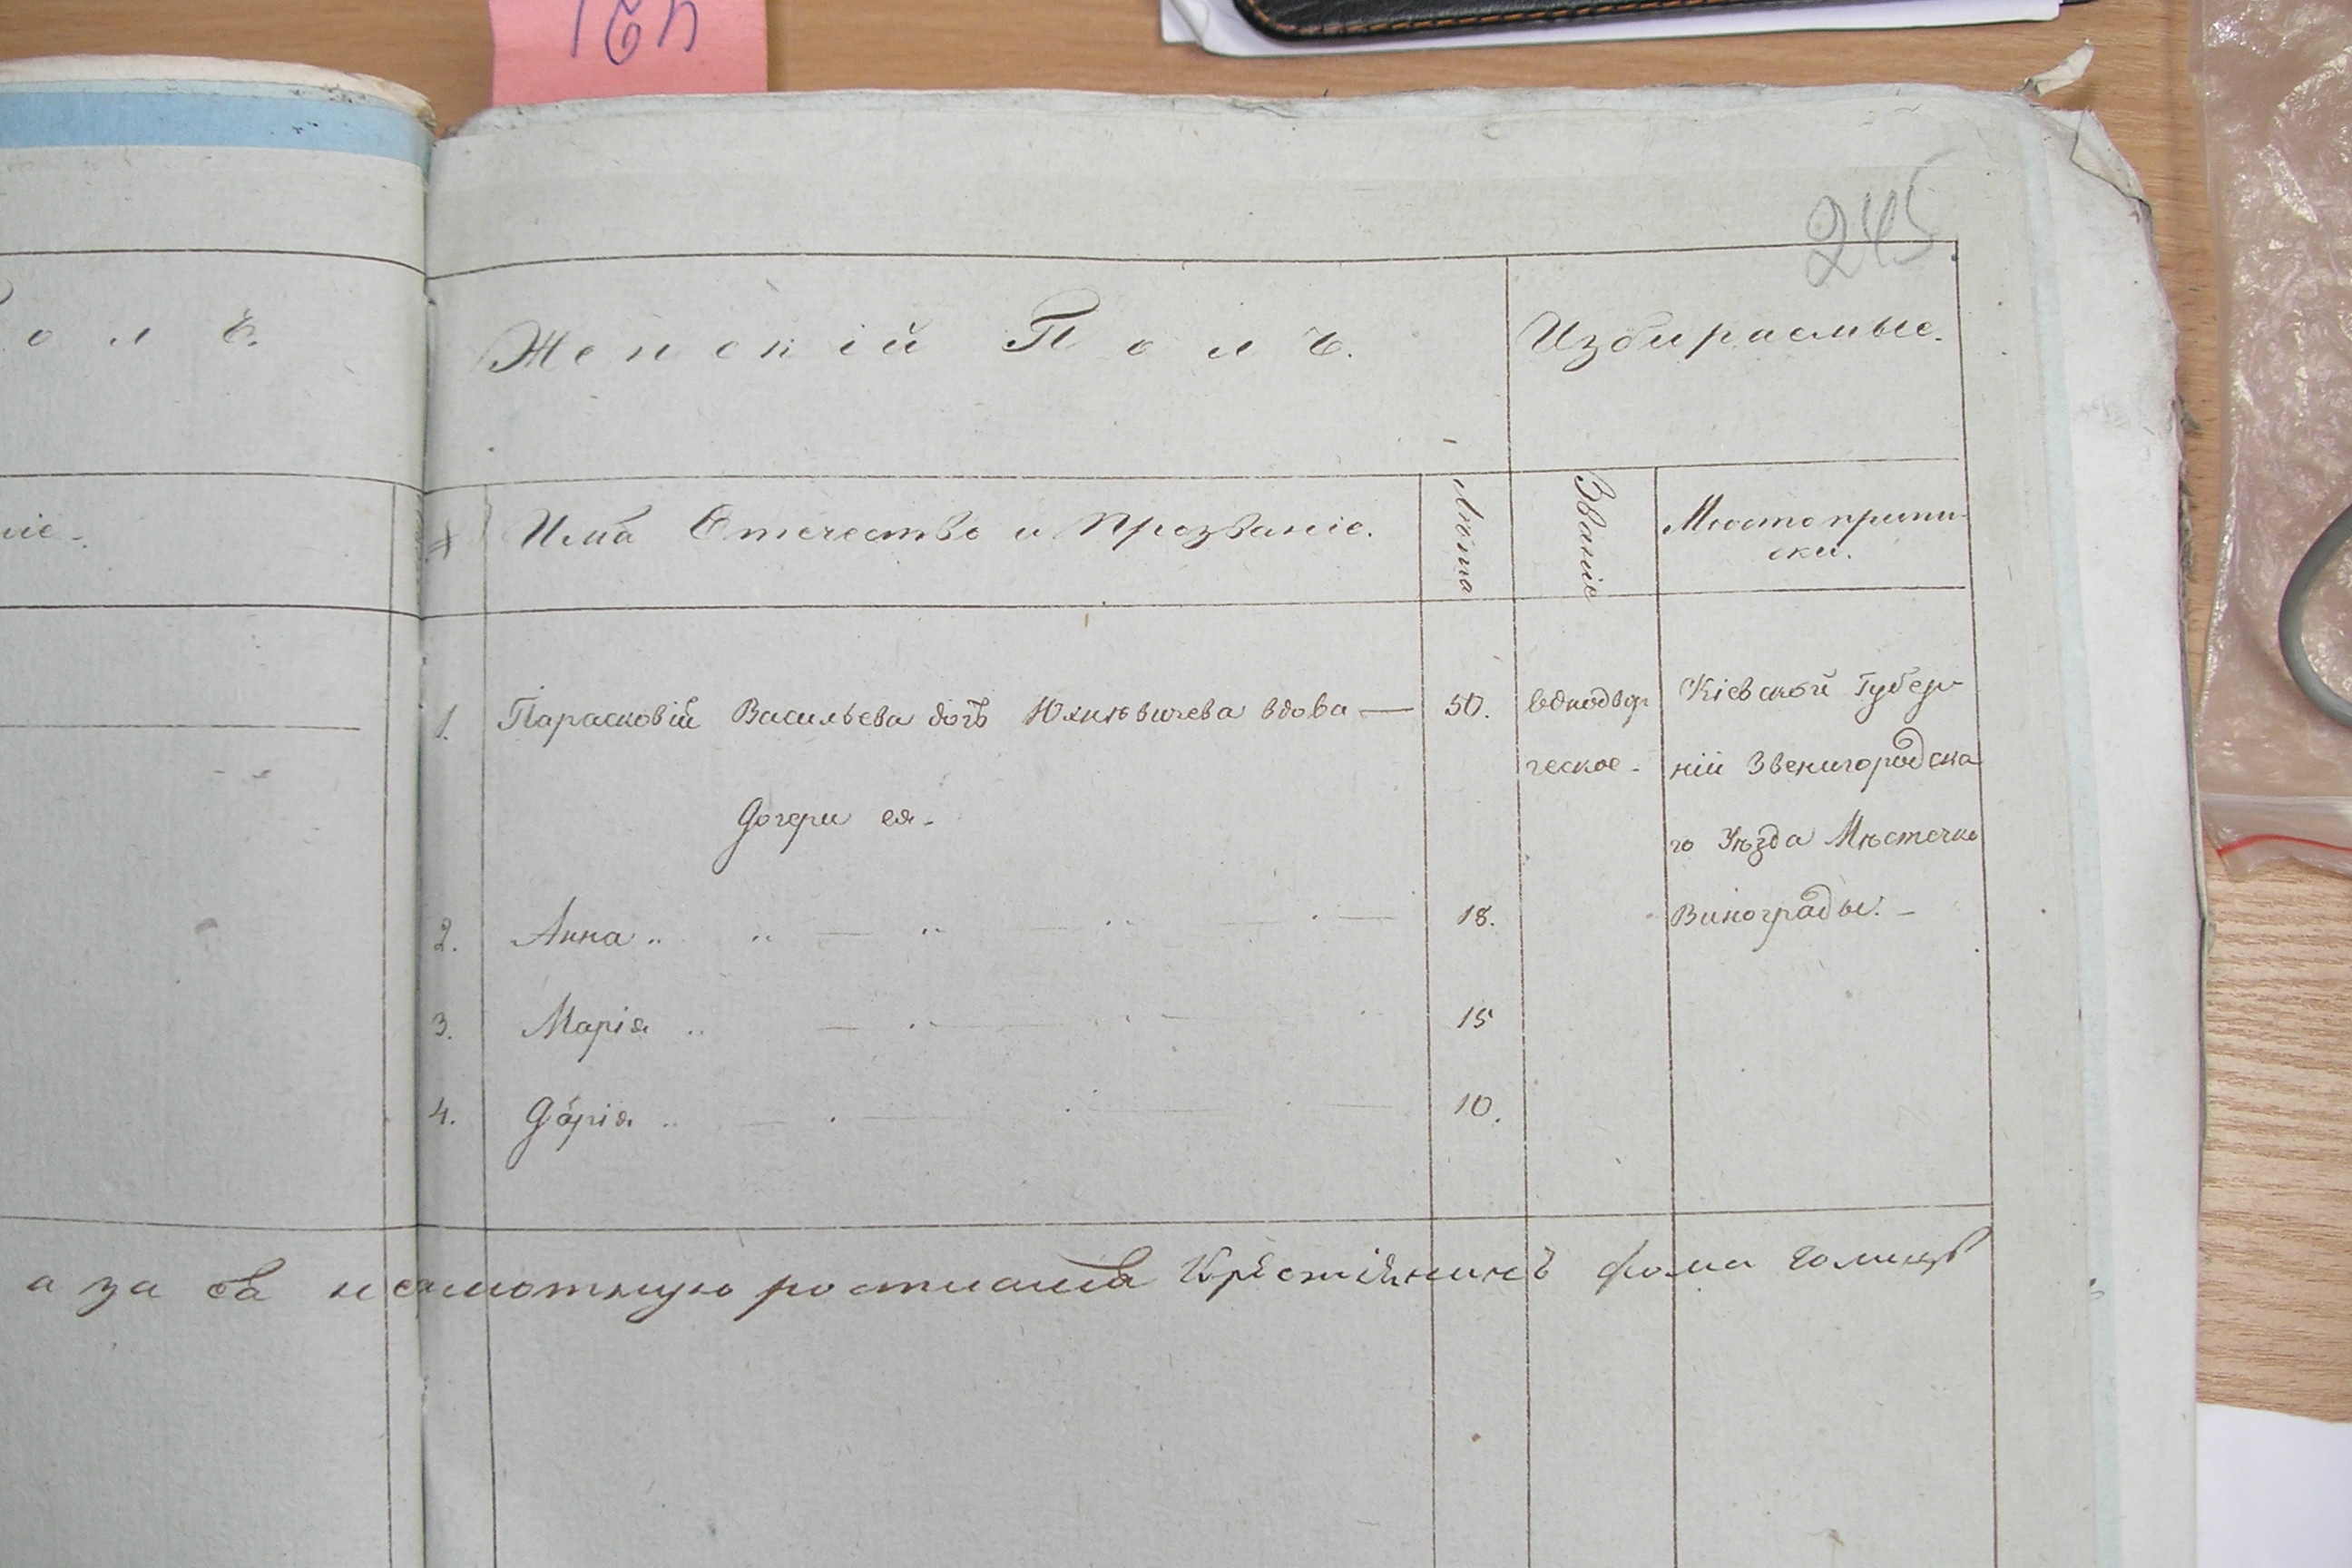 245
олъ.
Женскій Полъ.
Избираемые.
ніе.
№
Имя Отечество и Прозваніе.
Лѣта
Званіе
Мѣсто припи-
ски.
1. Парасковія Васильева дочь Юхновичева вдова — 50. воднодвор
ческое.
Кіевской Губер-
ніи Звенигородска
го Уѣзда Мѣстечко
Винограды. -
Дочери ея.
2. Анна 18.
3. Марія 15
4. Дарія 10.
а за ея несамотную росписався Крѣстіянинъ Фома